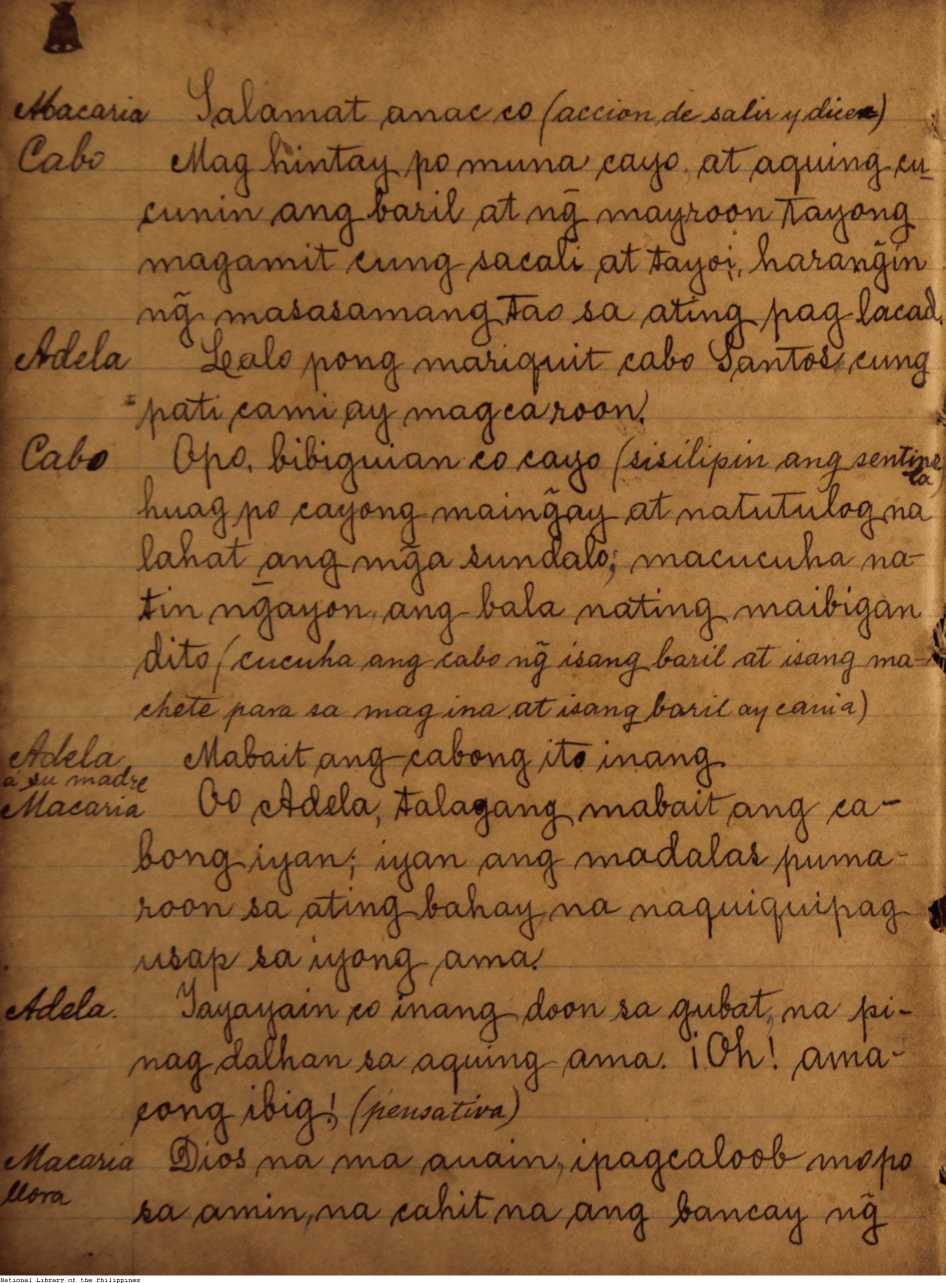 Macaria Salamat anac co (accion de salir y dicen)
Cabo Mag hintay po muna cayo, at aquing cu-
cunin ang baril at ng̃ mayroon tayong
magamit cung sacali at tayoi, harang̃in
ng̃ masasamang tao sa ating pag lacad.
Adela Lalo pong mariquit cabo Santos, cung
pati cami ay magcaroon.
Cabo Opo, bibiguian co cayo (sisilipin ang sentinela)
huag po cayong maing̃ay at natutulog na
lahat ang mg̃a sundalo; macucuha na-
tin ng̃ayon ang bala nating maibigan
dito (cucuha ang cabo ng̃ isang baril at isang ma-
chete para sa mag ina at isang baril ay cania)
Adela Mabait ang cabong ito inang
á su madre
Macaria Oo Adela, talagang mabait ang ca-
bong iyan; iyan ang madalas puma-
roon sa ating bahay na naquiquipag
usap sa iyong ama.
Adela. Yayayain co inang doon sa gubat, na pi-
nag dalhan sa aquing ama. ¡Oh! ama-
cong ibig! (pensativa)
Macaria Dios na ma auain, ipagcaloob mopo
llora
sa amin, na cahit na ang bancay ng̃
National Library of the Philippines